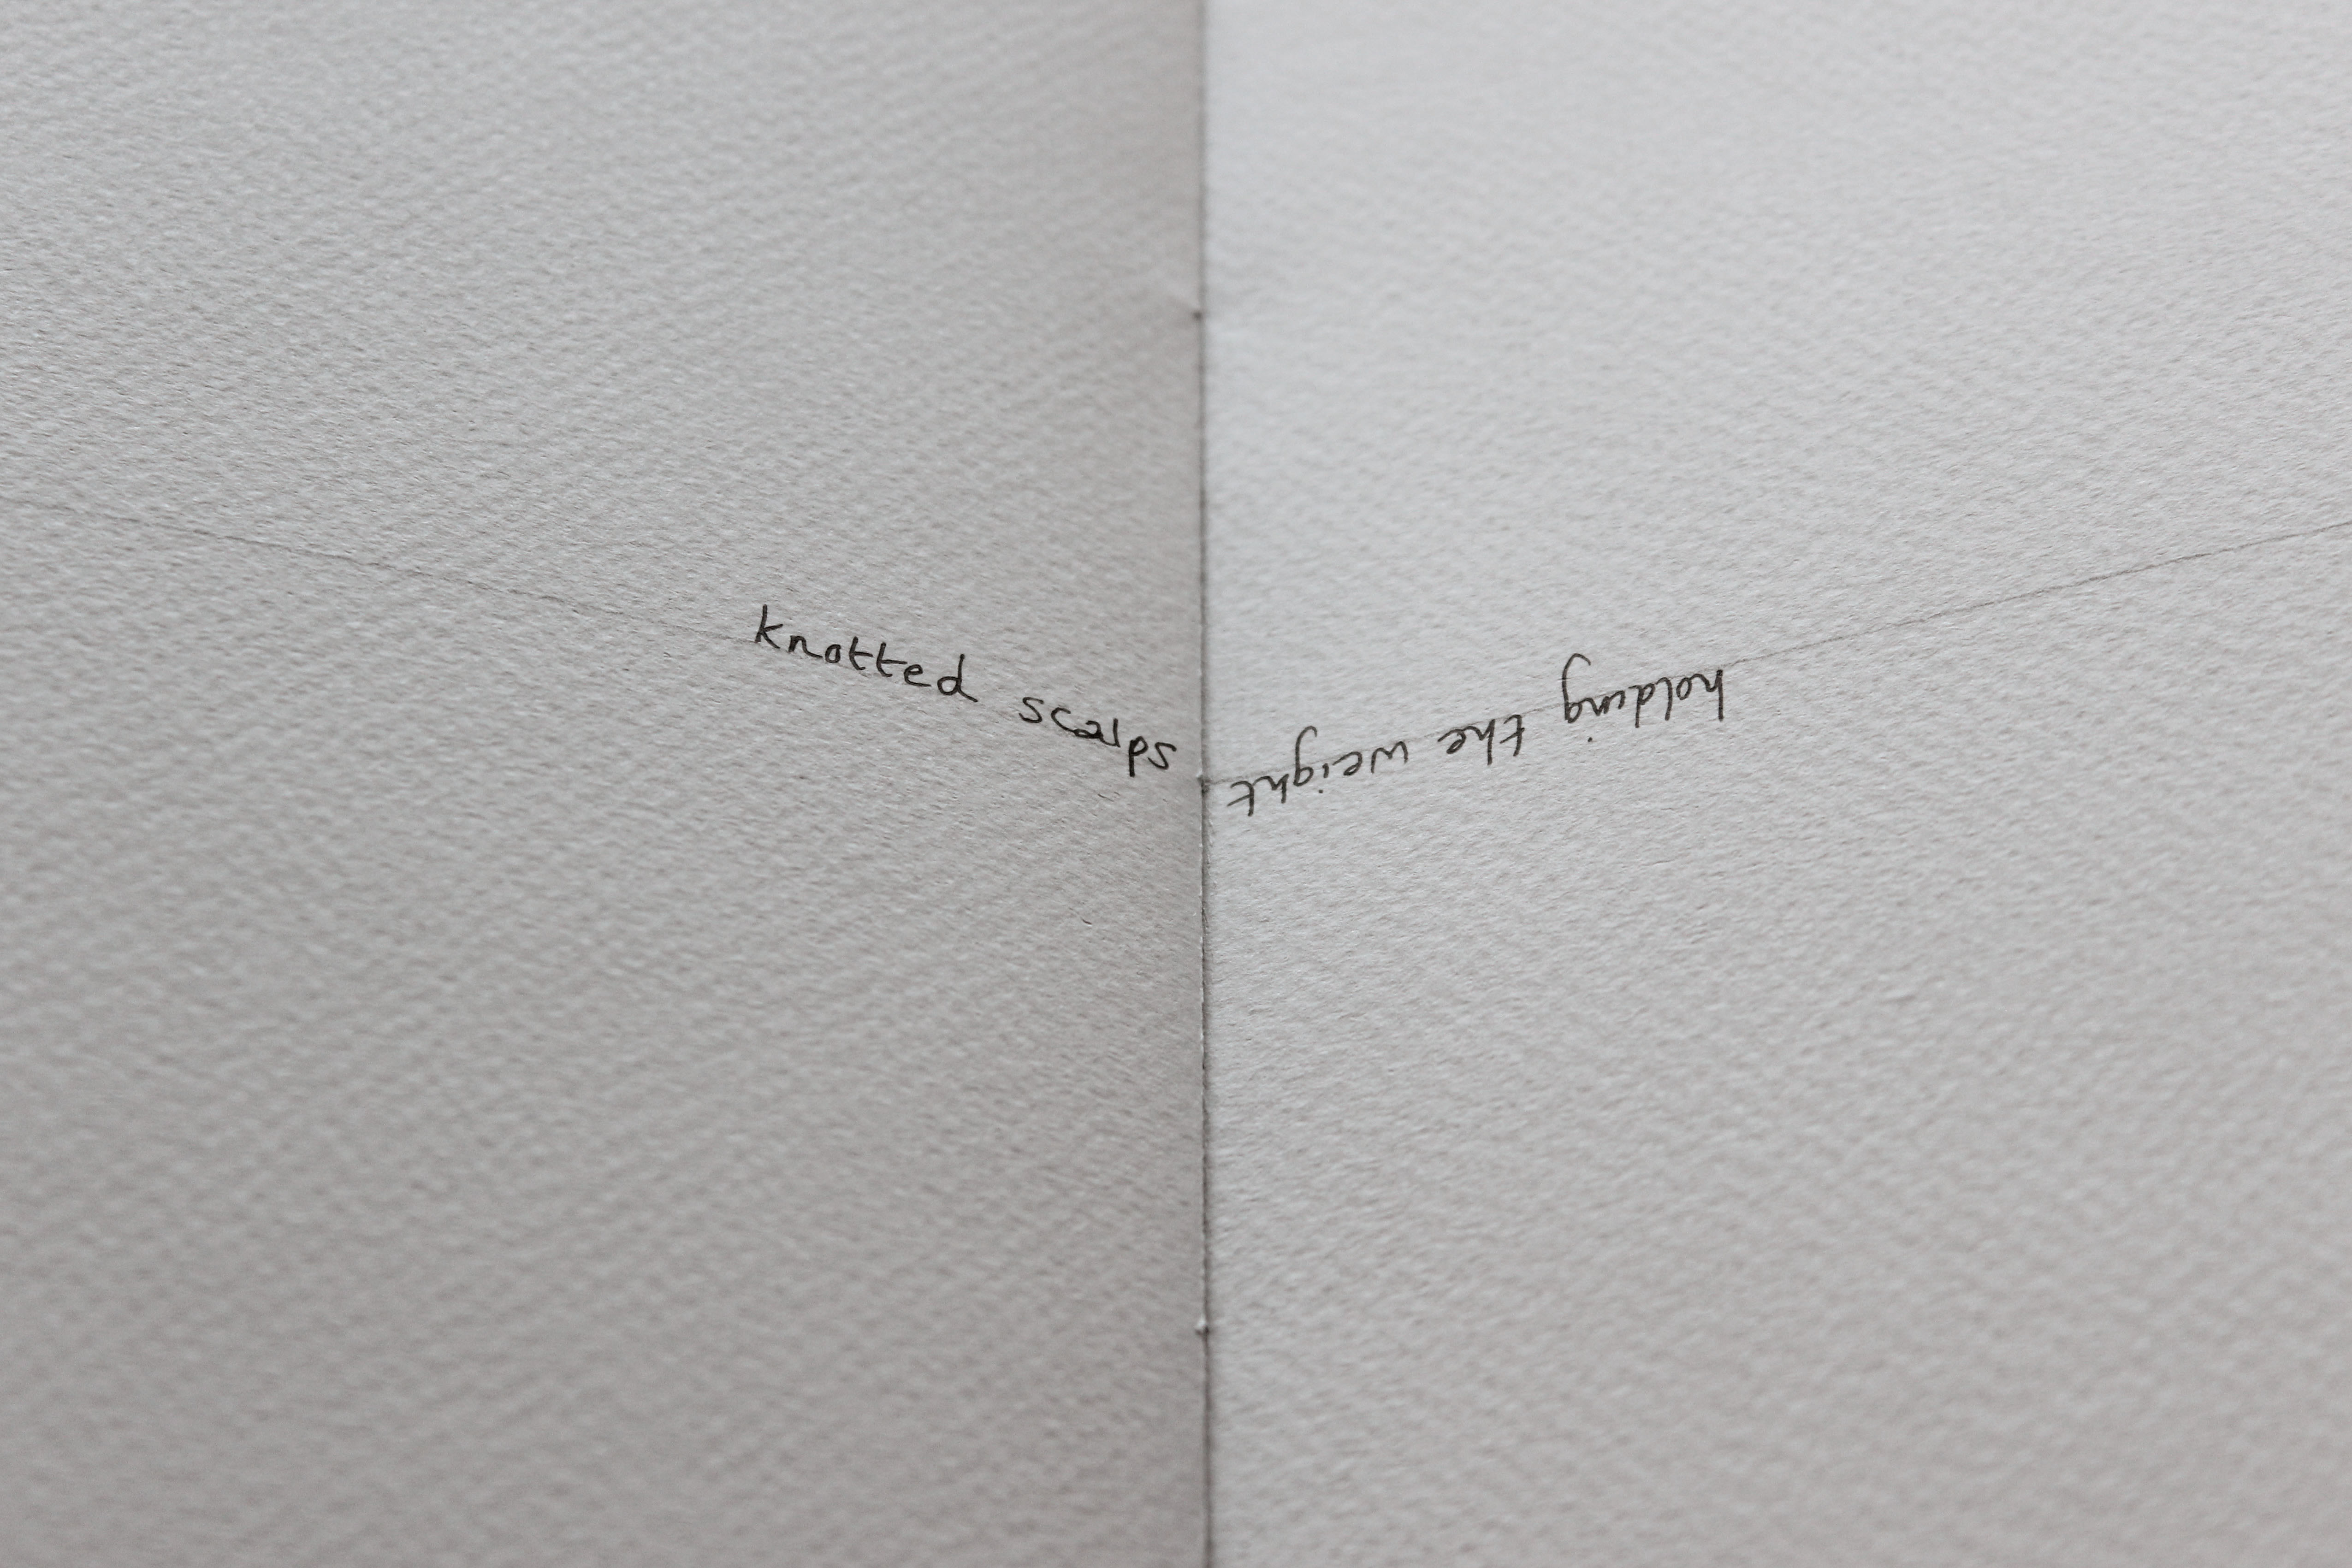 knotted scalps
holding the weight